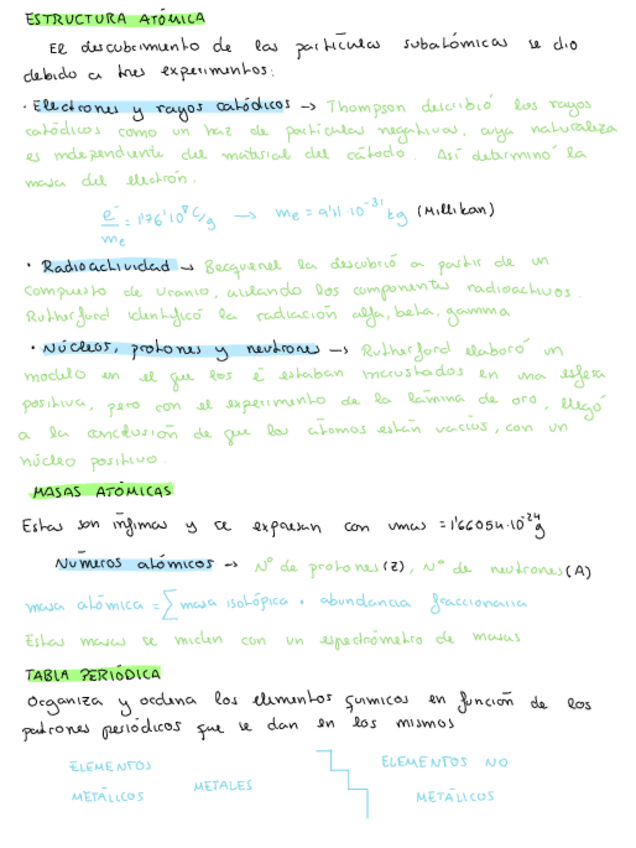 ESTRUCTURA ATÓMICA
El descubrimento de las partículas subatómicas se dio
debido a tres experimentos:
· Electrones y rayos catódicos → Thompson describió los rayos
catódicos como un haz de partículas negativas, cuya naturaleza
es independiente del material del cátodo. Así determinó la
masa del electrón.
e⁻/me = 1'76·10⁸ C/g → me = 9'11·10⁻³¹ kg (Millikan)
· Radioactividad → Becquerel la descubrió a partir de un
compuesto de uranio, aislando los componentes radioactivos.
Rutherford identificó la radiación alfa, beta, gamma
· Núcleos, protones y neutrones → Rutherford elaboró un
modelo en el que los ē estaban incrustados en una esfera
positiva, pero con el experimento de la lámina de oro, llegó
a la conclusión de que los átomos están vacíos, con un
núcleo positivo.
MASAS ATÓMICAS
Estas son ínfimas y se expresan con umas = 1'66054·10⁻²⁴ g
Números atómicos → Nº de protones (Z), Nº de neutrones (A)
masa atómica = ∑ masa isotópica · abundancia fraccionaria
Estas masas se miden con un espectrómetro de masas
TABLA PERIÓDICA
Organiza y ordena los elementos químicos en función de los
patrones periódicos que se dan en los mismos
ELEMENTOS METÁLICOS
METALES
ELEMENTOS NO METÁLICOS